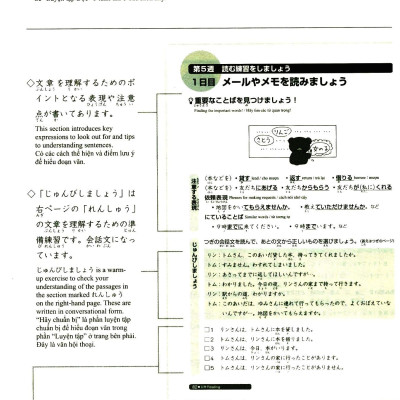 ◇文章を理解するためのポ
イントとなる表現や注意
点が書いてあります。
This section introduces key
expressions to look out for and tips
to understanding sentences.
Có các cách thể hiện và điểm lưu ý
để hiểu đoạn văn.
◇「じゅんびしましょう」は
右ページの「れんしゅう」
の文章を理解するための準
備練習です。会話文になっ
ています。
じゅんびしましょう is a warm-
up exercise to check your
understanding of the passages in
the section marked れんしゅう
on the right-hand page. These are
written in conversational form.
"Hãy chuẩn bị" là phần luyện tập
chuẩn bị để hiểu đoạn văn trong
phần "Luyện tập" ở trang bên phải.
Đây là văn hội thoại.
第5週 読む練習をしましょう
1日目 メールやメモを読みましょう
重要なことばを見つけましょう!
Finding the important words!
りんご
さとう
女の子
注意する表現
(本などを)・貸す ・返す ・借りる
(本などを)・友だちにあげる ・友だちからもらう ・友だちが(私に)くれる
依頼表現
・地図をかいてもらえませんか。 ・教えていただけませんか。など
にていることば
・9時までに来てください。 ・9時までいます。など
じゅんびしましょう
つぎの会話文を読んで、あとの文から正しいものを選びましょう。
リン:トムさん、このあいだ貸した本、持ってきてくれましたか。
トム:すみません。わすれてしまいました。
リン:あさってまでに返してほしいんですが…。
トム:わかりました。今日の夜、リンさんの家まで持って行きます。
リン:駅からの道、わかりますか。
トム:このあいだは、ゆみさんに連れて行ってもらったので、よくおぼえていな
いんですが…。地図をかいてもらえますか。
□1 リンさんは、トムさんに本を貸しました。
□2 トムさんは、リンさんに本を貸りました。
□3 リンさんは、今日、本がいります。
□4 トムさんは、リンさんの家に行ったことがあります。
□5 リンさんは、トムさんの家に行ったことがありません。